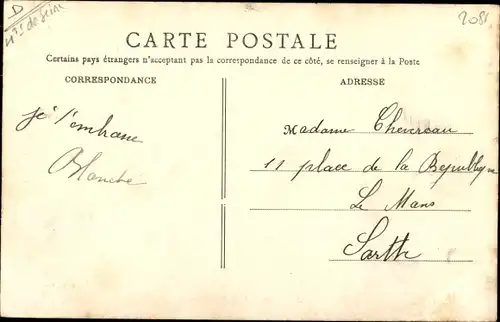 D
2086
CARTE POSTALE
Certains pays étrangers n'acceptant pas la correspondance de ce côté, se renseigner à la Poste
CORRESPONDANCE
ADRESSE
je t'embrasse
Blanche
Madame Chevreau
11 place de la République
Le Mans
Sarthe